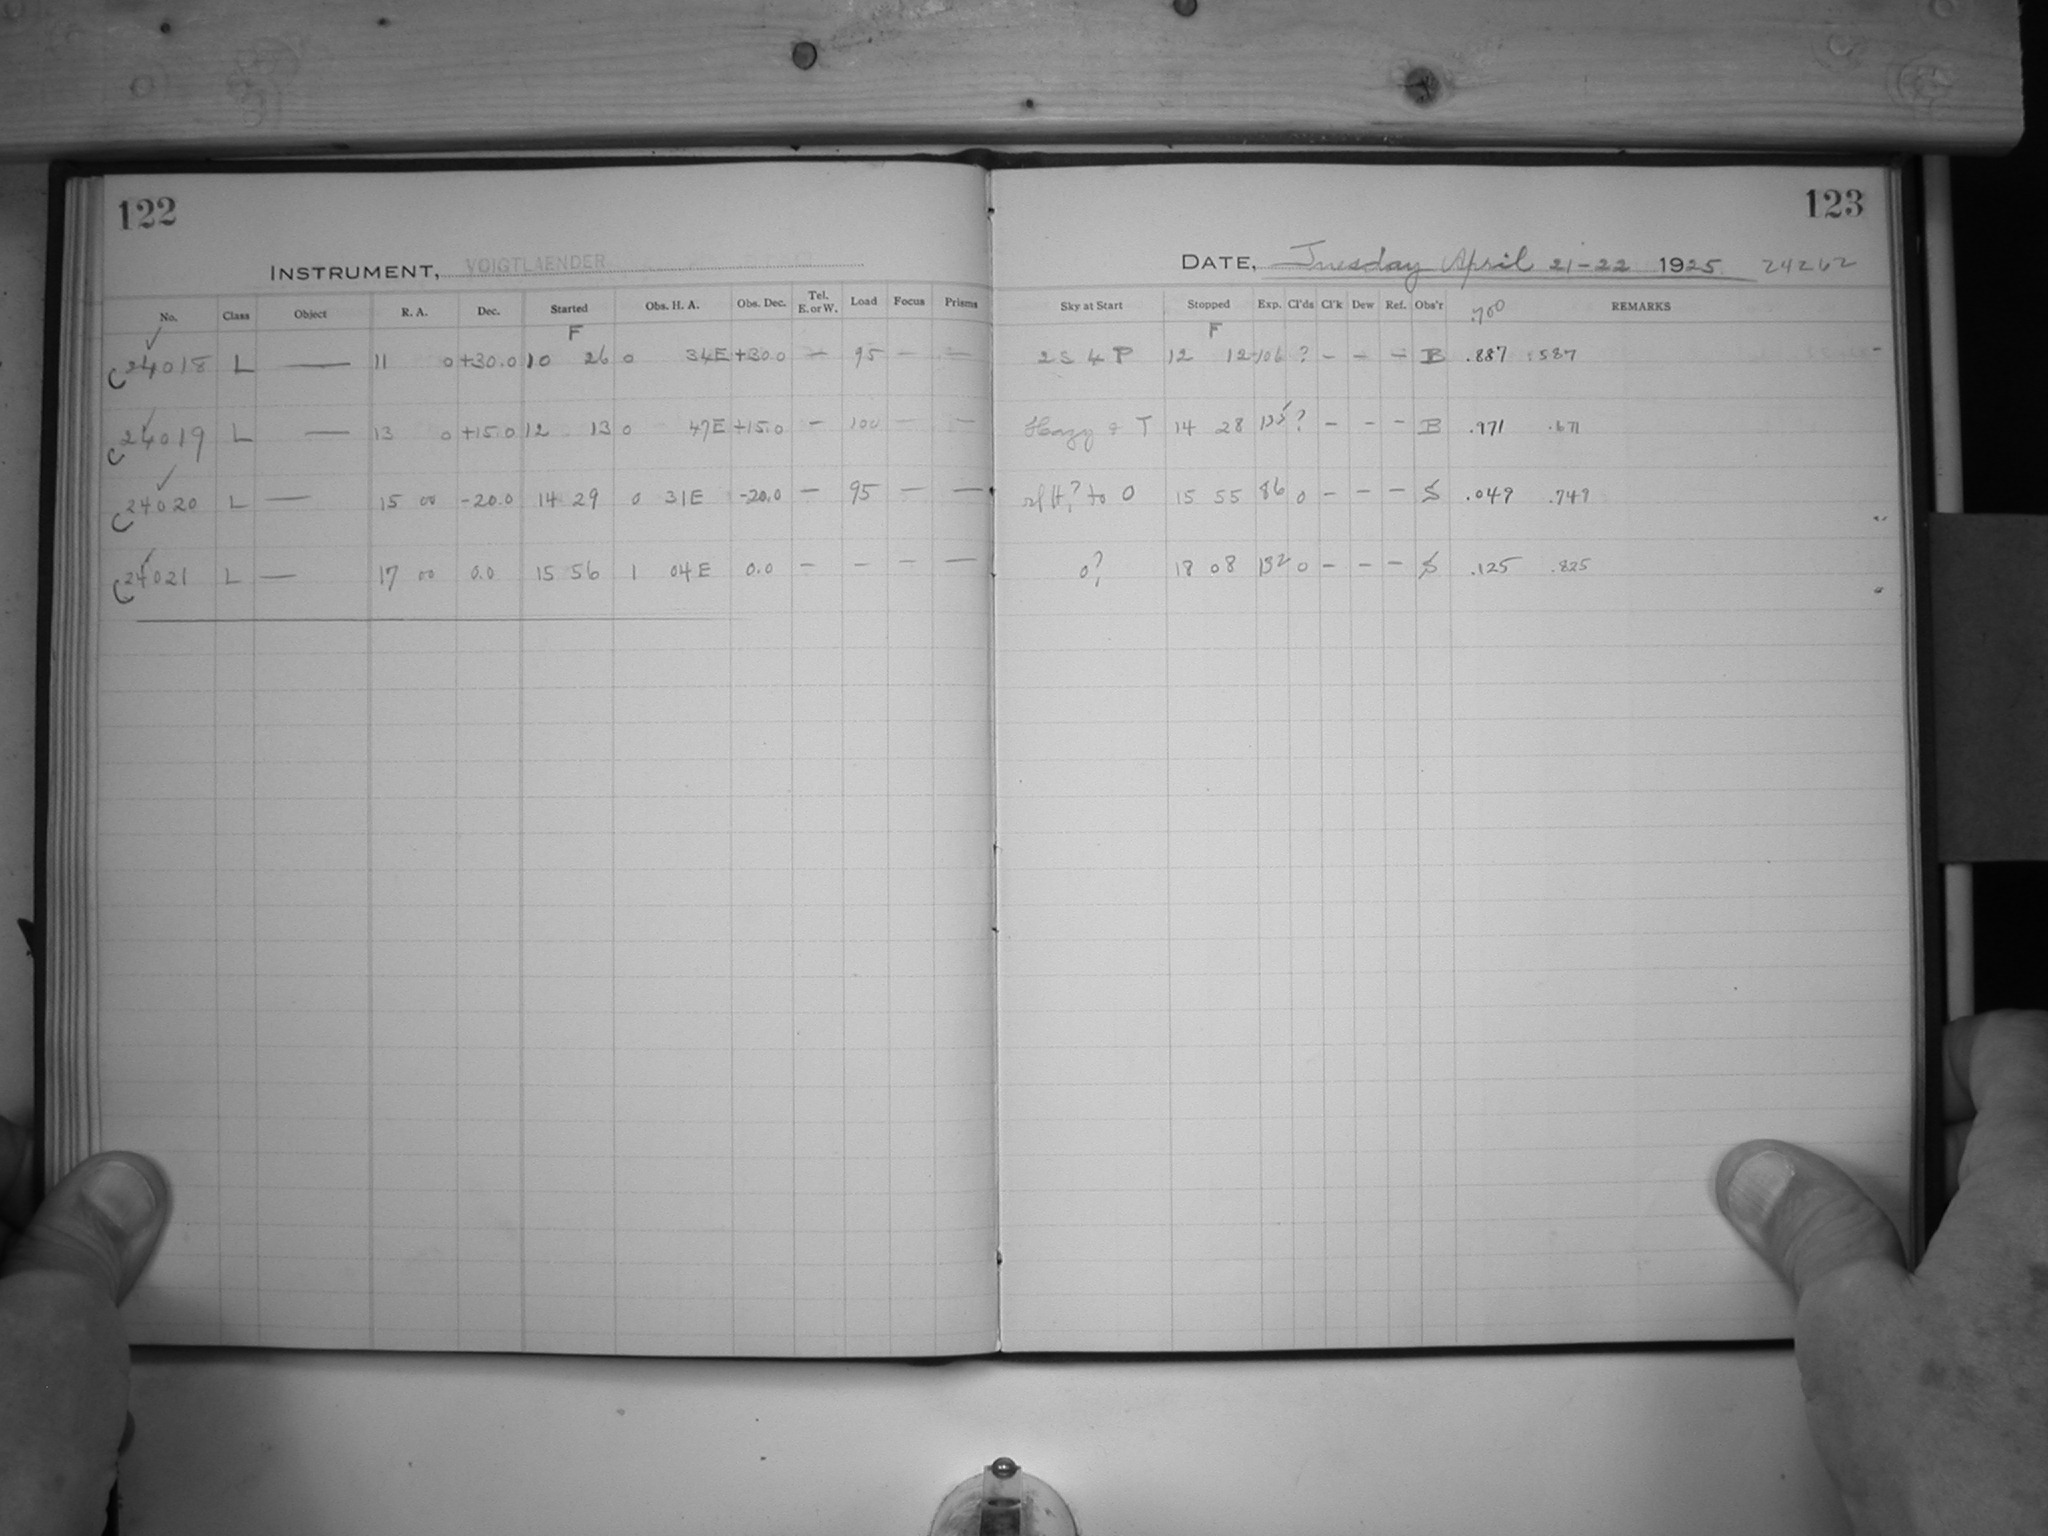 122
INSTRUMENT, VOIGTLAENDER
No. Class Object R. A. Dec. Started Obs. H. A. Obs. Dec. Tel. E. or W. Load Focus Prisms
F
C24018 L — 11 0 +30.0 10 26 0 34E +30.0 — 95 — —
C24019 L — 13 0 +15.0 12 13 0 47E +15.0 — 100 — —
C24020 L — 15 00 -20.0 14 29 0 31E -20.0 — 95 — —
C24021 L — 17 00 0.0 15 56 1 04E 0.0 — — — —
123
DATE, Tuesday April 21-22 1925 24262
Sky at Start Stopped Exp. Cl'ds Cl'k Dew Ref. Obs'r .700 REMARKS
F
2 S 4 P 12 12 106 ? — — — B .887 .587
Hazy & T 14 28 135 ? — — — B .971 .671
? to 0 15 55 86 0 — — — S .049 .749
0? 18 08 132 0 — — — S .125 .825